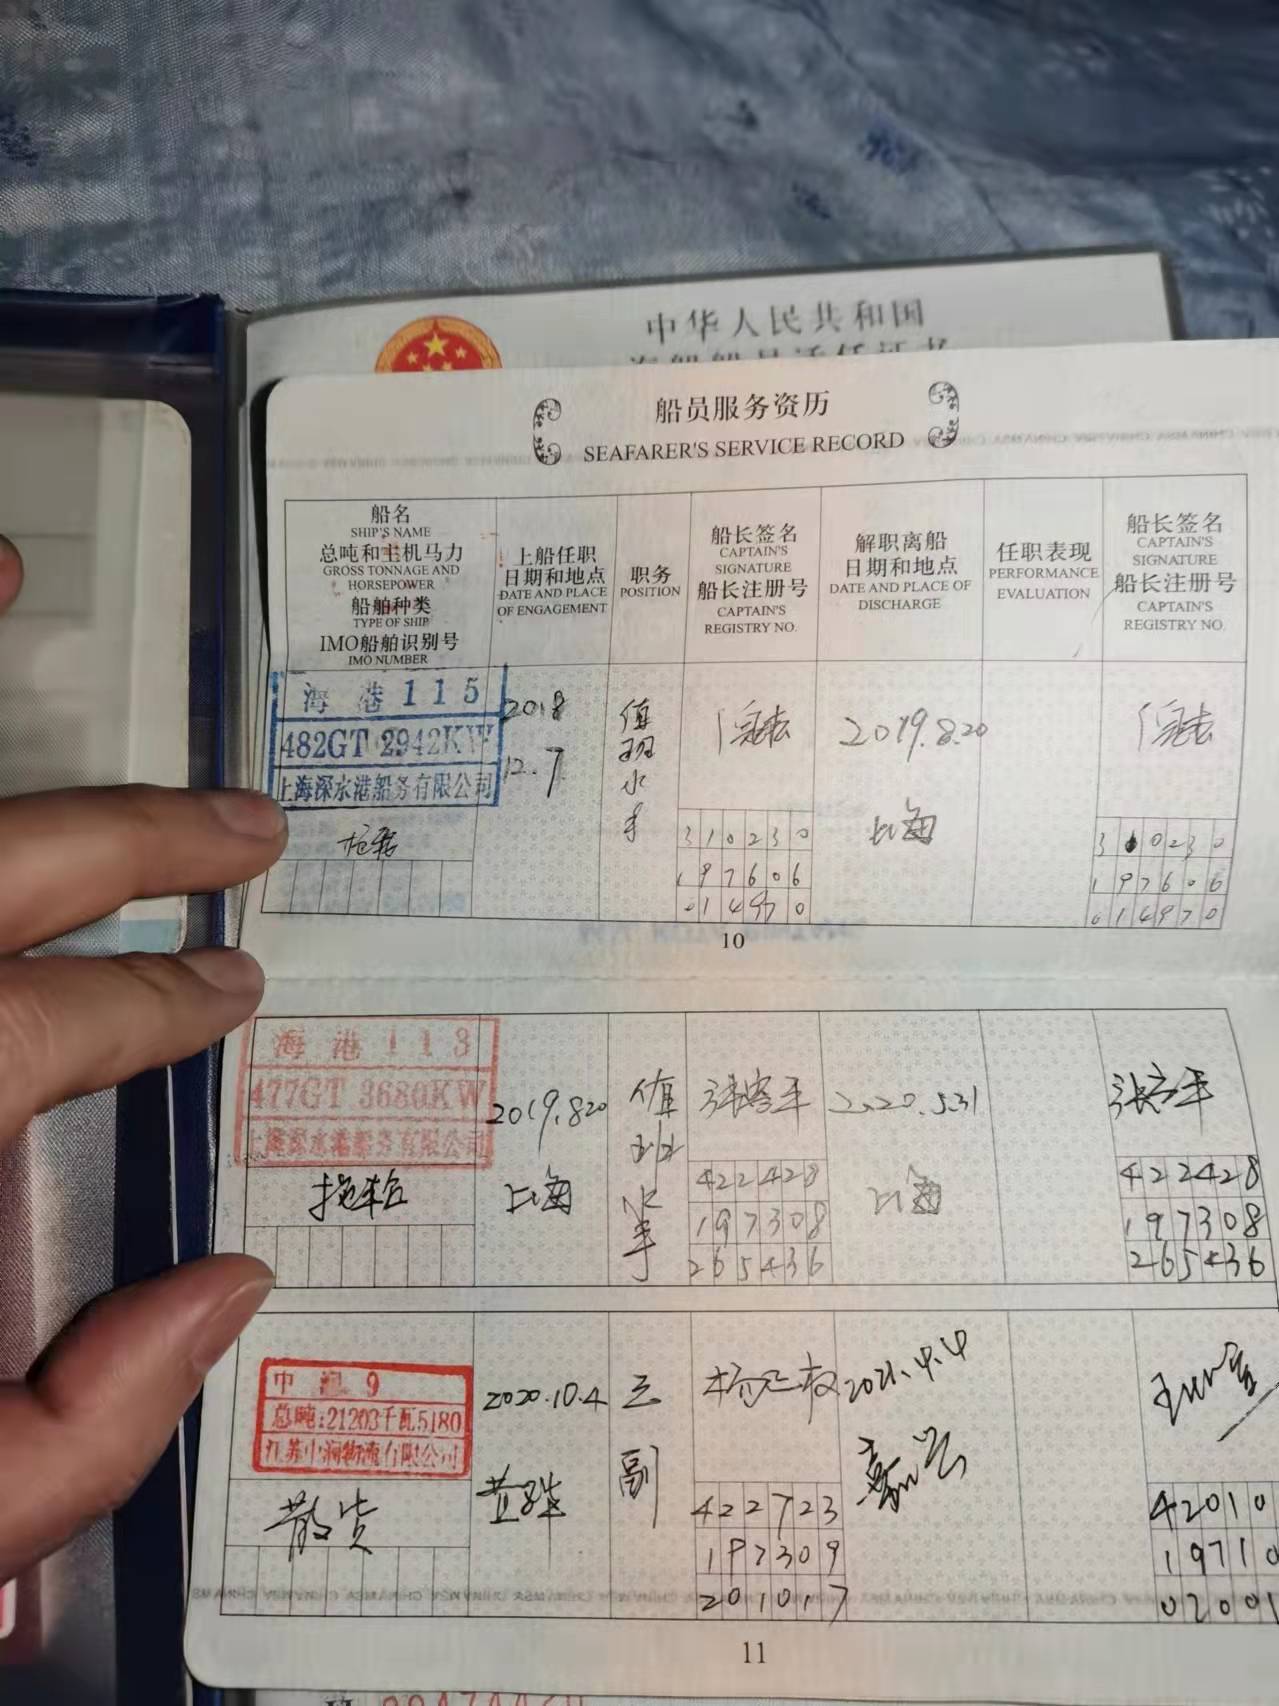 中华人民共和国
海船船员适任证书
船员服务资历
SEAFARER'S SERVICE RECORD
船名
SHIP'S NAME
总吨和主机马力
GROSS TONNAGE AND
HORSEPOWER
船舶种类
TYPE OF SHIP
IMO船舶识别号
IMO NUMBER
上船任职
日期和地点
DATE AND PLACE
OF ENGAGEMENT
职务
POSITION
船长签名
CAPTAIN'S
SIGNATURE
船长注册号
CAPTAIN'S
REGISTRY NO.
解职离船
日期和地点
DATE AND PLACE OF
DISCHARGE
任职表现
PERFORMANCE
EVALUATION
船长签名
CAPTAIN'S
SIGNATURE
船长注册号
CAPTAIN'S
REGISTRY NO.
海港115
482GT 2942KW
上海深水港船务有限公司
拖轮
2018
12.7
值班水手
310230
197606
014970
2019.8.20
上海
310230
197606
014970
10
海港113
477GT 3680KW
上海深水港船务有限公司
拖轮
2019.8.20
上海
值班水手
422428
197308
265436
2020.5.31
上海
422428
197308
265436
中润9
总吨:21203千瓦5180
江苏中润物流有限公司
散货
2020.10.4
黄骅
三副
422723
197309
201017
2021.4.4
42010
19710
02001
11